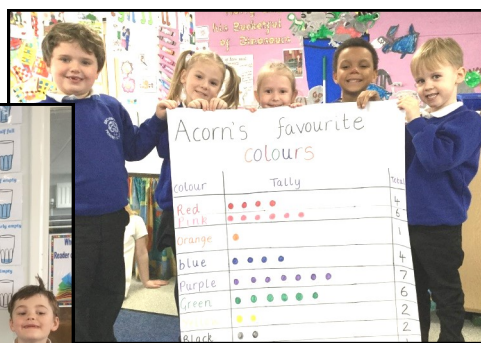 Acorn's favourite
colours
colour Tally total
Red 4
Pink 6
Orange 1
blue 4
Purple 7
Green 6
2
Black 2